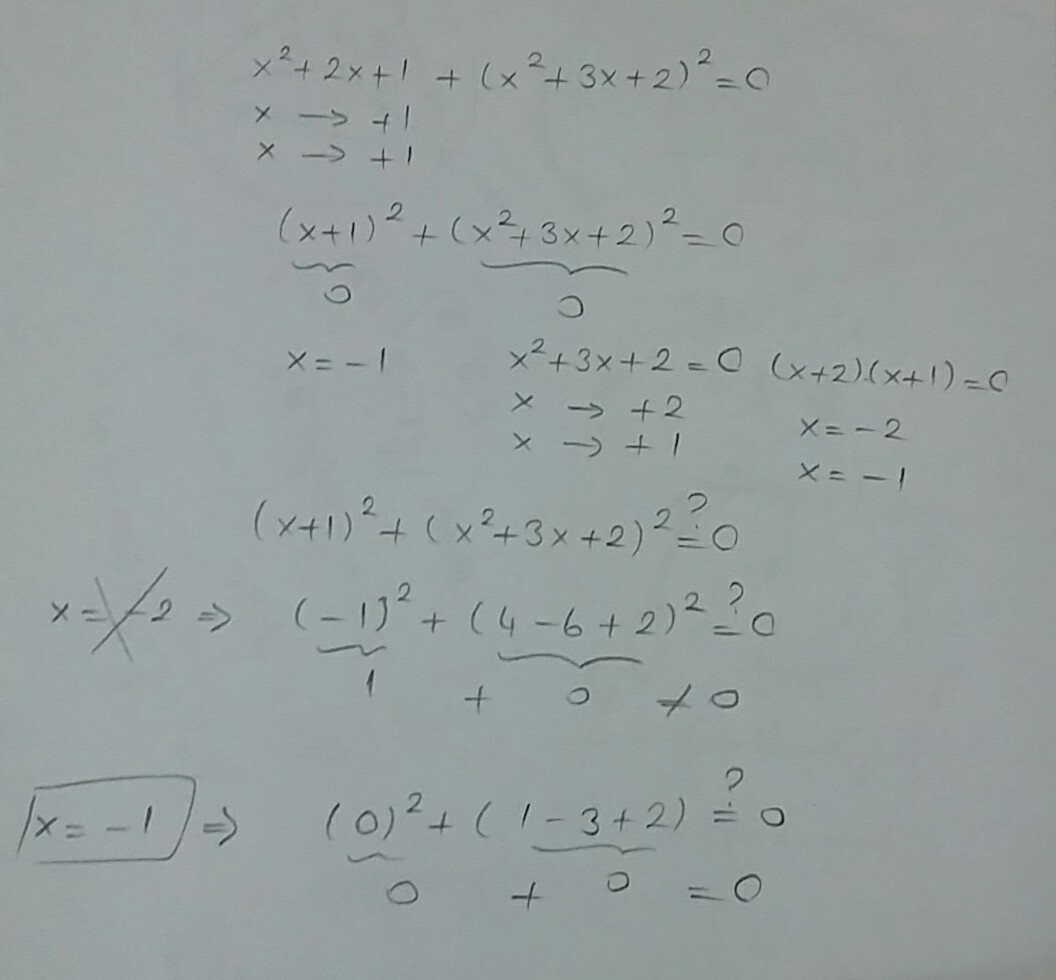 x²+2x+1 + (x²+3x+2)²=0
x → +1
x → +1
(x+1)²+(x²+3x+2)²=0
0 0
x=-1 x²+3x+2=0 (x+2).(x+1)=0
x → +2 x=-2
x → +1 x=-1
(x+1)²+(x²+3x+2)²≟0
x=-2 ⇒ (-1)²+(4-6+2)²≟0
1 + 0 ≠0
x=-1 ⇒ (0)²+(1-3+2)≟0
0 + 0 =0